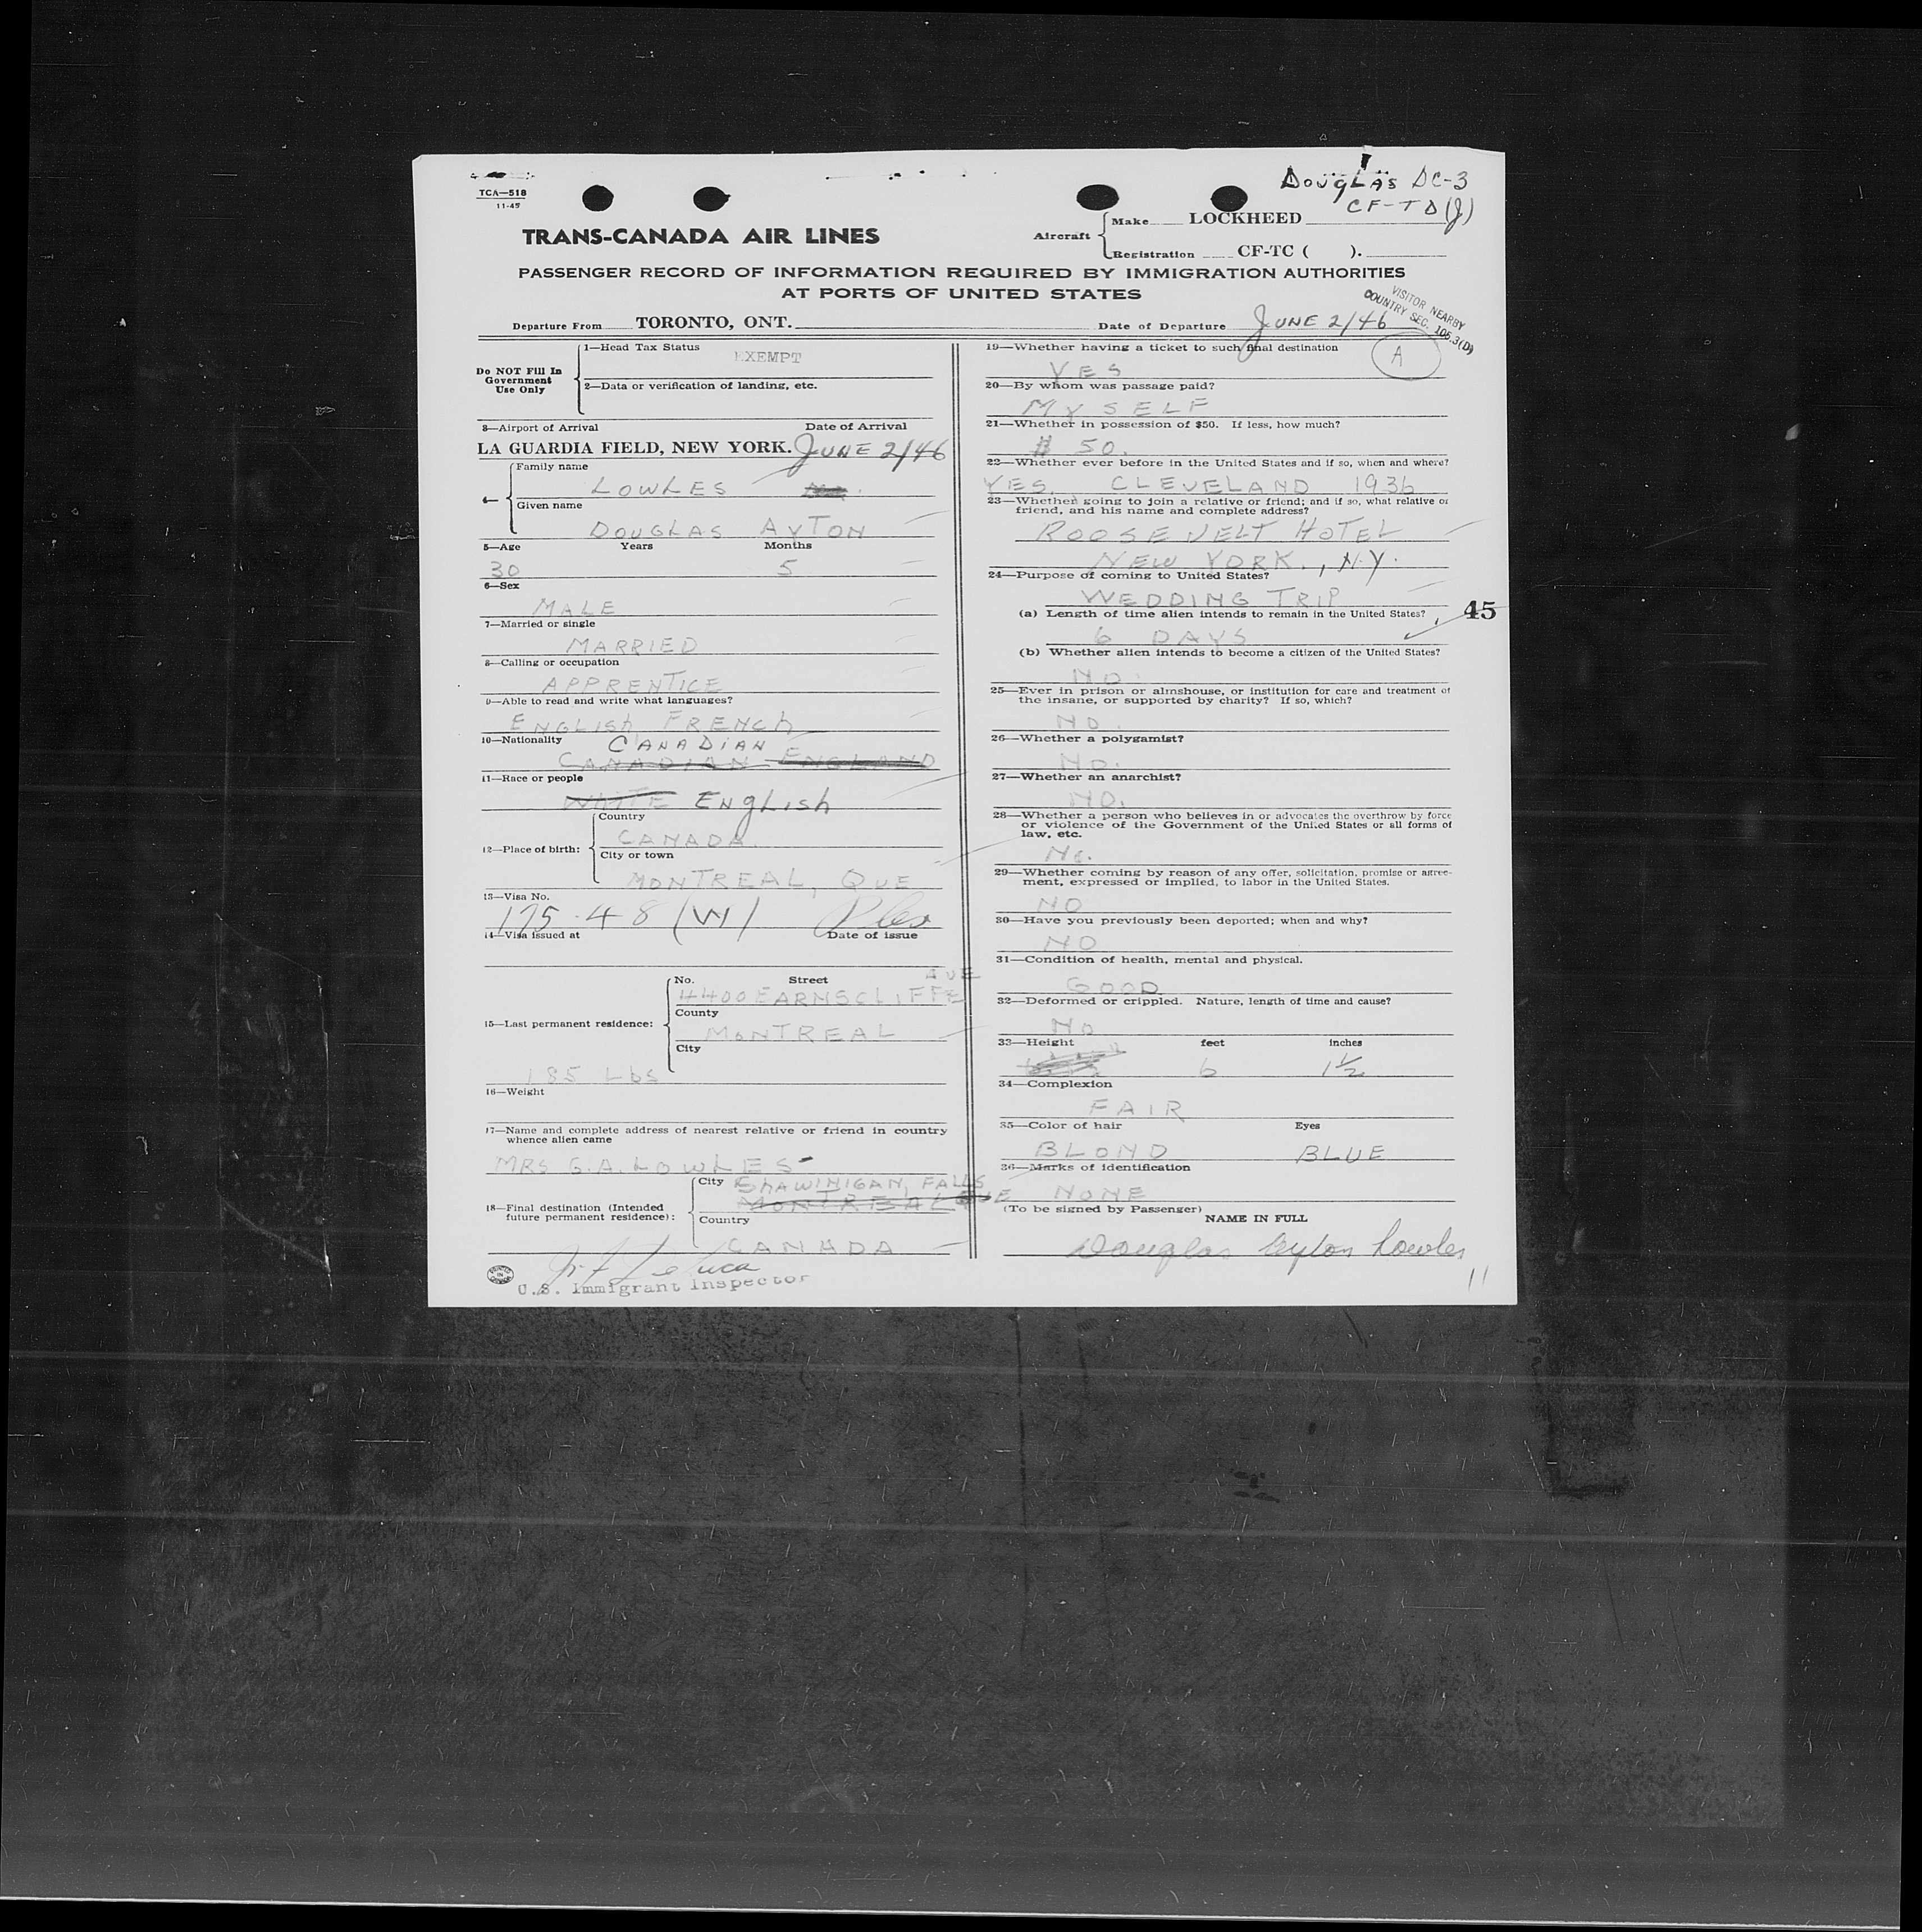 TCA—518
11-45
DOUGLAS DC-3
CF-TD(J)
TRANS-CANADA AIR LINES
Aircraft
Make LOCKHEED
Registration CF-TC ( ).
PASSENGER RECORD OF INFORMATION REQUIRED BY IMMIGRATION AUTHORITIES
AT PORTS OF UNITED STATES
VISITOR NEARBY
COUNTRY SEC. 105.3(D)
Departure From TORONTO, ONT. Date of Departure JUNE 2/46
Do NOT Fill In
Government
Use Only
1—Head Tax Status
EXEMPT
2—Data or verification of landing, etc.
3—Airport of Arrival Date of Arrival
LA GUARDIA FIELD, NEW YORK. JUNE 2/46
4—
Family name
LOWLES
Given name
DOUGLAS AYTON
5—Age Years Months
30 5
6—Sex
MALE
7—Married or single
MARRIED
8—Calling or occupation
APPRENTICE
9—Able to read and write what languages?
ENGLISH FRENCH
10—Nationality CANADIAN
CANADIAN ENGLAND
11—Race or people
WHITE ENGLISH
12—Place of birth:
Country
CANADA
City or town
MONTREAL, QUE
13—Visa No.
175-48 (W)
14—Visa issued at Date of issue
15—Last permanent residence:
No. Street
AVE
4400 EARNSCLIFFE
County
MONTREAL
City
185 Lbs
16—Weight
17—Name and complete address of nearest relative or friend in country
whence alien came
MRS G.A. LOWLES
18—Final destination (Intended
future permanent residence):
City SHAWINIGAN FALLS
MONTREAL QUE
Country
CANADA
U.S. Immigrant Inspector
19—Whether having a ticket to such final destination
A
YES
20—By whom was passage paid?
MYSELF
21—Whether in possession of $50. If less, how much?
$ 50.
22—Whether ever before in the United States and if so, when and where?
YES. CLEVELAND 1936
23—Whether going to join a relative or friend; and if so, what relative or
friend, and his name and complete address?
ROOSEVELT HOTEL
NEW YORK., N.Y.
24—Purpose of coming to United States?
WEDDING TRIP
(a) Length of time alien intends to remain in the United States?
45
6 DAYS
(b) Whether alien intends to become a citizen of the United States?
NO
25—Ever in prison or almshouse, or institution for care and treatment of
the insane, or supported by charity? If so, which?
NO.
26—Whether a polygamist?
NO.
27—Whether an anarchist?
NO.
28—Whether a person who believes in or advocates the overthrow by force
or violence of the Government of the United States or all forms of
law, etc.
No.
29—Whether coming by reason of any offer, solicitation, promise or agree-
ment, expressed or implied, to labor in the United States.
NO
30—Have you previously been deported; when and why?
NO
31—Condition of health, mental and physical.
GOOD
32—Deformed or crippled. Nature, length of time and cause?
NO
33—Height feet inches
6 1½
34—Complexion
FAIR
35—Color of hair Eyes
BLOND BLUE
36—Marks of identification
NONE
(To be signed by Passenger)
NAME IN FULL
Douglas Ayton Lowles
11